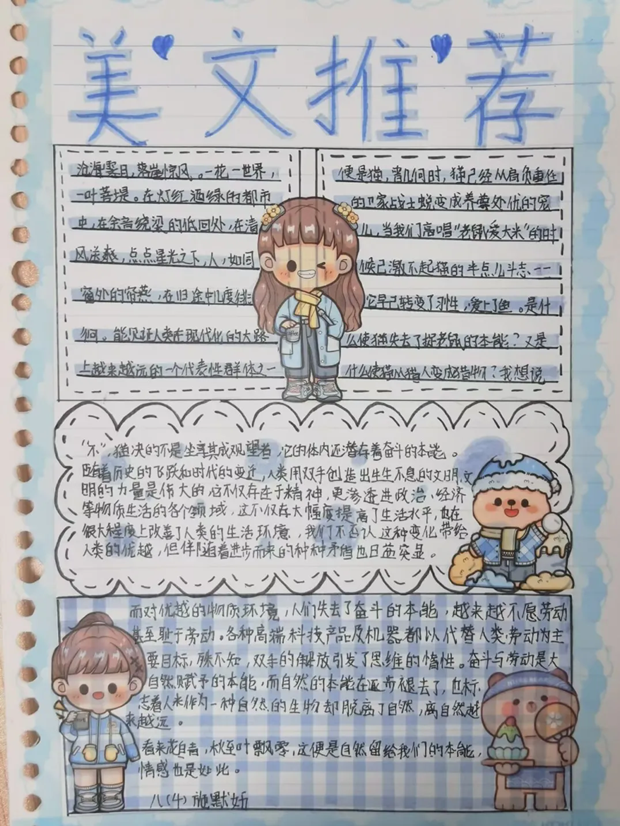 美文推荐
沧海雪月,离崖惊风。一花一世界,
一叶菩提。在灯红酒绿的都市
中,在余音绕梁的低回处,在清
风送教,点点星光之下,人,如同
窗外的归燕,在旧途中几度徘
徊。能见证人类在现代化的大路
上越来越远的一个代表性群体之一
便是猫,曾几何时,猫已经从肩负重任
的"家战士蜕变成养尊处优的宠
儿,当我们高唱"老鼠爱大米"的时
候已激不起猫的半点儿斗志、一
它早已转变了习性,爱上了鱼。是什
么使猫失去了捉老鼠的本能?又是
什么使猫从猎人变成猎物?我想说
"不",猫决的不是坐享其成观望者,它的体内还潜存着奋斗的本能。
随着历史的飞跃和时代的变迁,人类用双手创造出生生不息的文明,文
明的力量是伟大的,这不仅存在于精神,更渗透进政治、经济
等物质生活的各个领域,这不仅在大幅度提高了生活水平,也在
很大程度上改善了人类的生活环境,我们不否认这种变化带给
人类的优越,但伴随着进步而来的种种矛盾也日益突显。
而对优越的物质环境,人们失去了奋斗的本能,越来越不愿劳动
甚至耻于劳动。各种高端科技产品及机器都以代替人类劳动为主
要目标,殊不知,双手的解放引发了思维的惰性。奋斗与劳动是大
自然赋予的本能,而自然的本能在逐步褪去了,也标
志着人来作为一种自然的生物却脱离了自然,离自然越
来越远。
春来花自青,秋至叶飘零,这便是自然留给我们的本能,
情感也是如此。
八(4) 施默妡